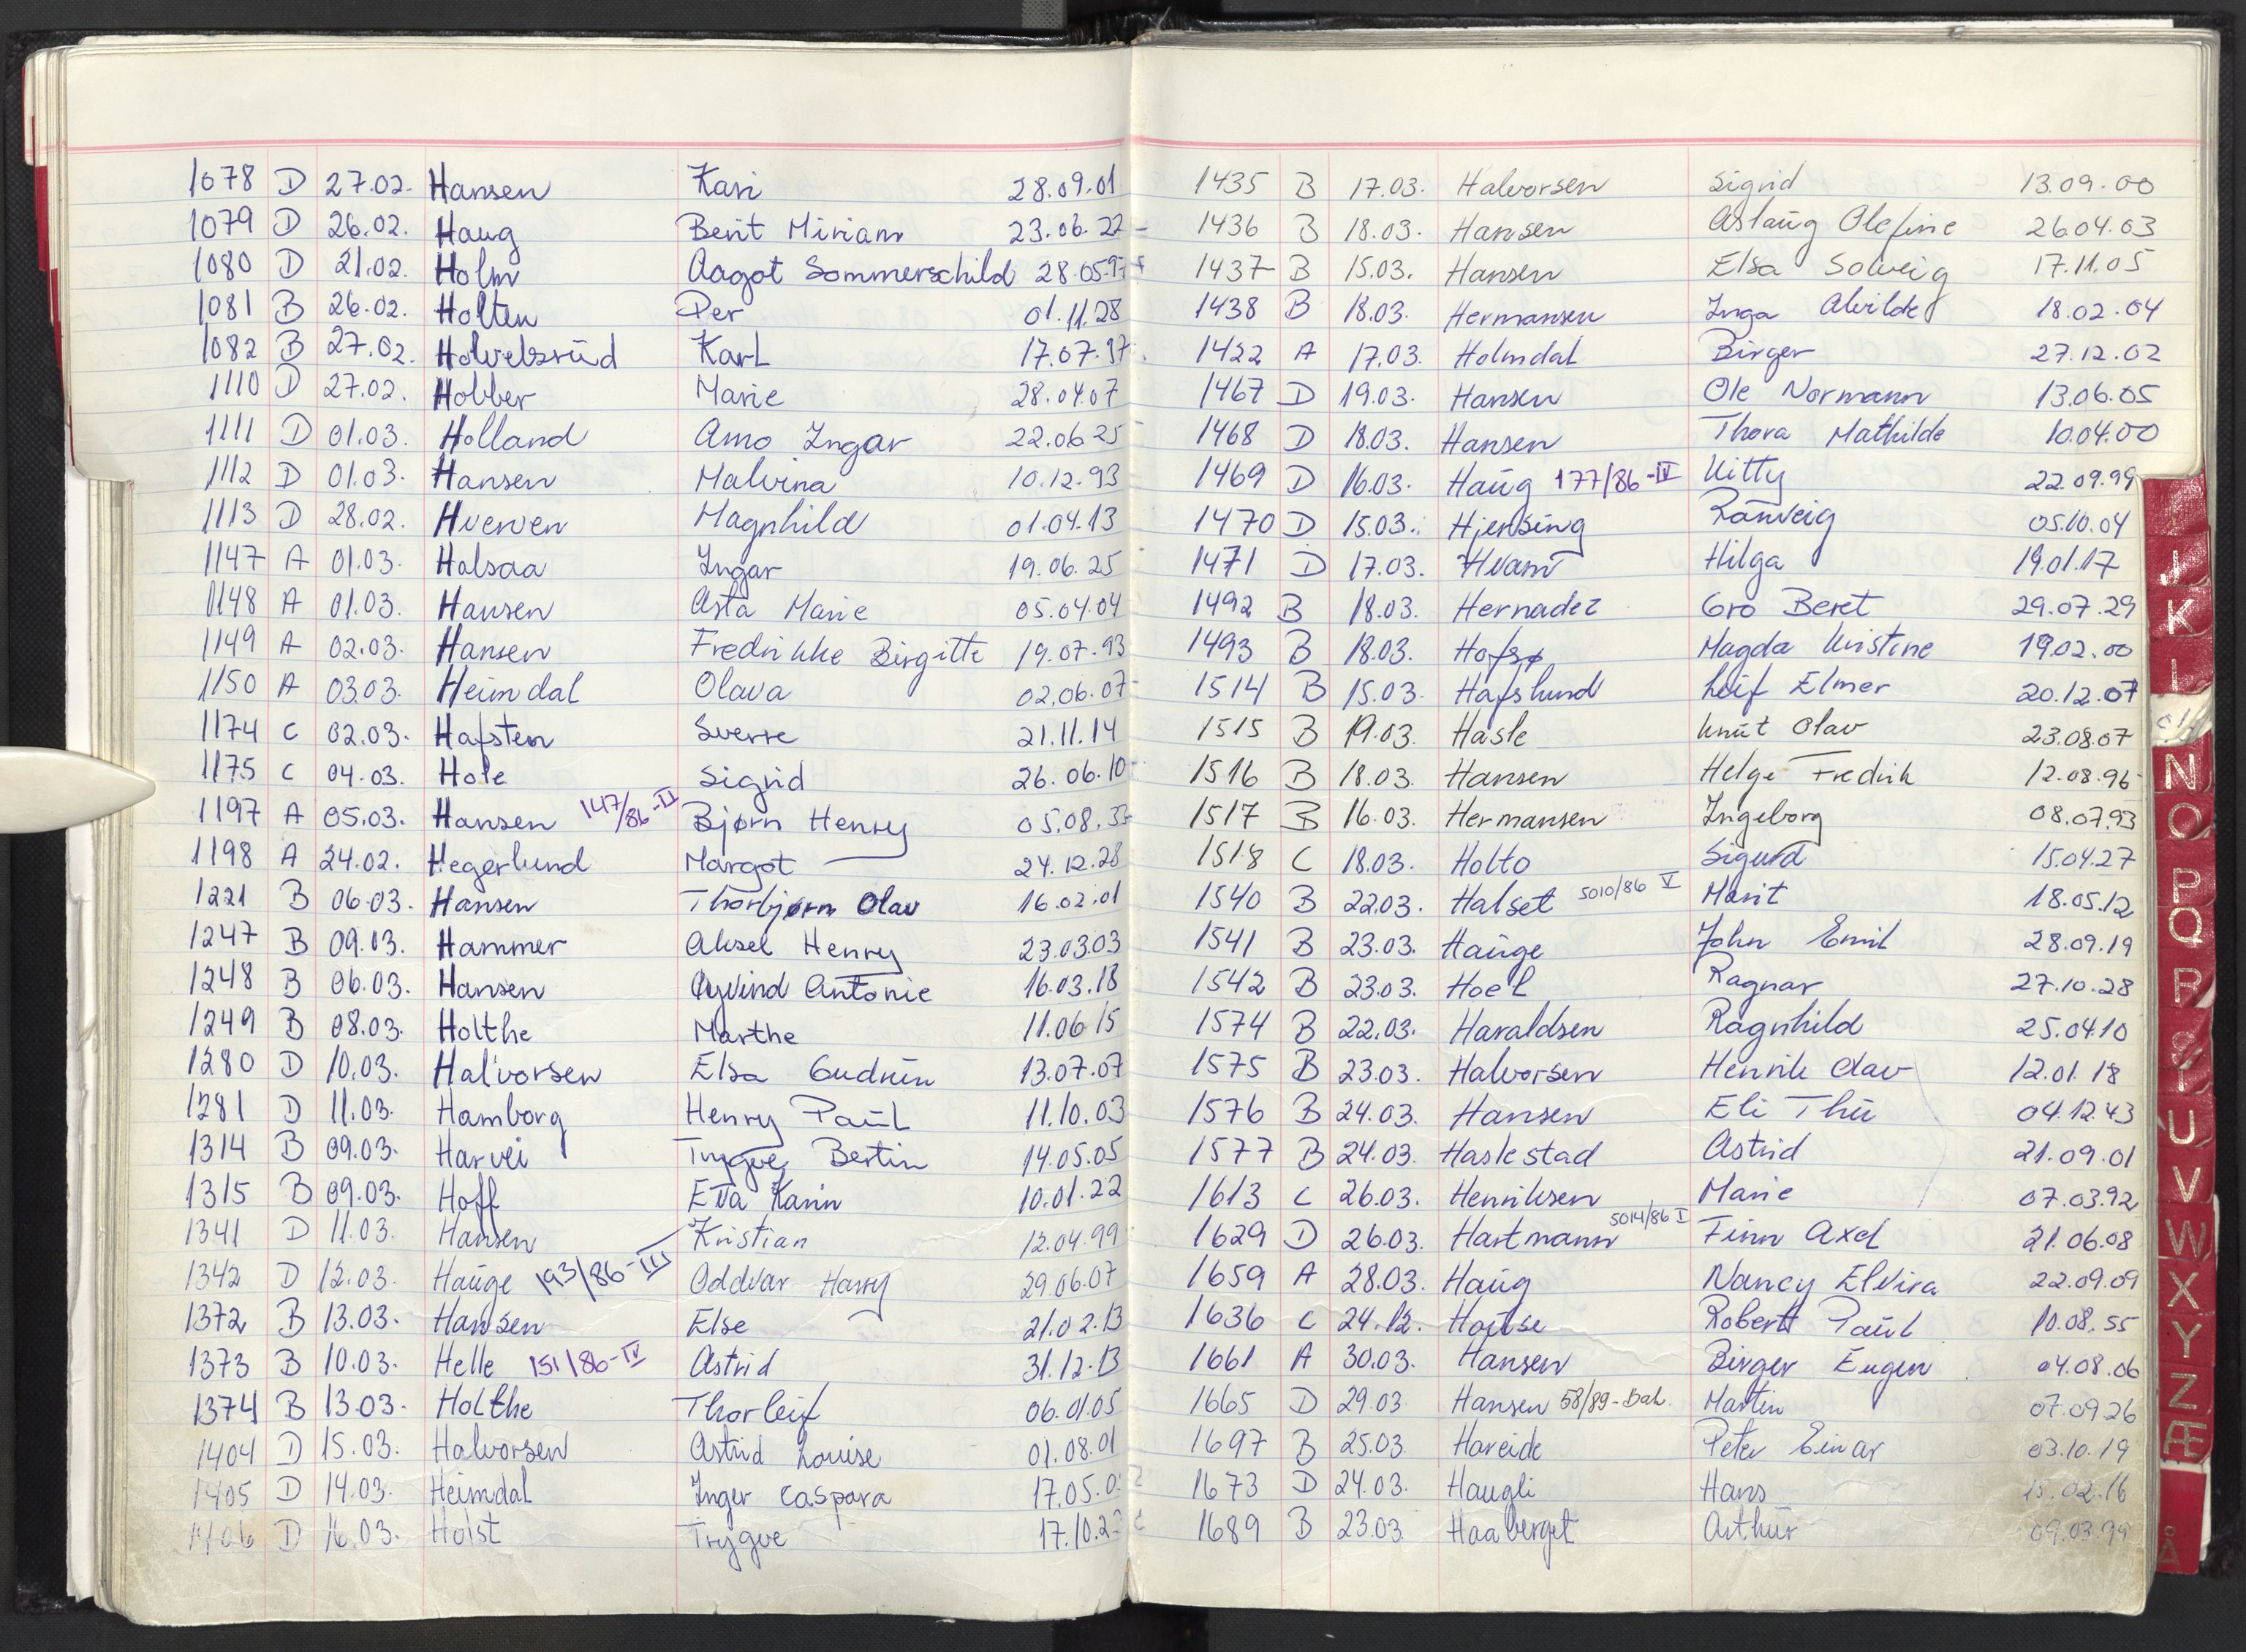 1078 D 27.02. Hansen Kari 28.09.01
1079 D 26.02. Haug Berit Miriam 23.06.22
1080 D 21.02. Holm Aagot Sommerschild
1081 B 26.02. Holten Per 01.11.28
1082 B 27.02. Holvelsrud Karl 17.07.97
1110 D 27.02. Hobber Marie 28.04.07
1111 D 01.03. Holland Arno Ingar 22.06.25
1112 D 01.03. Hansen Malvina 10.12.93
1113 D 28.02. Hverven Magnhild 01.04.13
1147 A 01.03. Halsaa Ingar 19.06.25
1148 A 01.03. Hansen Asta Marie 05.04.04
1149 A 02.03. Hansen Fredrikke Birgitte 19.07.93
1150 A 03.03. Heimdal Olava 02.06.07
1174 C 02.03. Hafsten Sverre 21.11.14
1175 C 04.03. Hole Sigrid 26.06.10
1197 A 05.03. Hansen 147/86-II Bjørn Henry
1198 A 24.02. Hegerlund Margot 24.12.28
1221 B 06.03. Hansen Thorbjørn Olav 16.02.01
1247 B 09.03. Hammer Aksel Henry 23.03.03
1248 B 06.03. Hansen Øyvind Antonie 16.03.18
1249 B 08.03. Holthe Marthe 11.06.15
1280 D 10.03. Halvorsen Elsa Gudrun 13.07.07
1281 D 11.03. Hamborg Henry Paul 11.10.03
1314 B 09.03. Harvei Trygve Bertin 14.05.05
1315 B 09.03. Hoff Eva Karin 10.01.22
1341 D 11.03. Hansen Kristian 12.04.99
1342 D 12.03. Hauge 193/86-III Oddvar Harry 29.06.07
1372 B 13.03. Hansen Else 21.02.13
1373 B 10.03. Helle 151/86-IV Astrid 31.12.13
1374 B 13.03. Holthe Thorleif 06.01.05
1404 D 15.03. Halvorsen Astrid Louise 01.08.01
1405 D 14.03. Heimdal Inger Caspara
1406 D 16.03. Holst Trygve
1435 B 17.03. Halvorsen Sigrid 13.09.00
1436 B 18.03. Hansen Aslaug Olefine 26.04.03
1437 B 15.03. Hansen Elsa Solveig 17.11.05
1438 B 18.03. Hermansen Inga Alvilde 18.02.04
1422 A 17.03. Holmdal Birger 27.12.02
1467 D 19.03. Hansen Ole Normann 13.06.05
1468 D 18.03. Hansen Thora Mathilde 10.04.00
1469 D 16.03. Haug 177/86-IV Kitty 22.09.99
1470 D 15.03. Hjersing Ranveig 05.10.04
1471 D 17.03. Hvam Hilga 19.01.17
1492 B 18.03. Hernadez Gro Beret 29.07.29
1493 B 18.03. Hofsø Magda Kristine 19.02.00
1514 B 15.03. Hafslund Leif Elmer 20.12.07
1515 B 19.03. Hasle Knut Olav 23.08.07
1516 B 18.03. Hansen Helge Fredrik 12.08.96
1517 B 16.03. Hermansen Ingeborg 08.07.93
1518 C 18.03. Holto Sigurd 15.04.27
1540 B 22.03. Halset 5010/86 V Marit 18.05.12
1541 B 23.03. Hauge John Emil 28.09.19
1542 B 23.03. Hoel Ragnar 27.10.28
1574 B 22.03. Haraldsen Ragnhild 25.04.10
1575 B 23.03. Halvorsen Henrik Olav 12.01.18
1576 B 24.03. Hansen Eli Thu 04.12.43
1577 B 24.03. Haslestad Astrid 21.09.01
1613 C 26.03. Henriksen Marie 07.03.92
1629 D 26.03. Hartmann 5014/86 I Finn Axel 21.06.08
1659 A 28.03. Haug Nancy Elvira 22.09.09
1636 C 24.12. Hause Robert Paul 10.08.55
1661 A 30.03. Hansen Birger Eugen 04.08.06
1665 D 29.03 Hansen 58/89-Bak. Martin 07.09.26
1697 B 25.03. Hareide Peter Einar 03.10.19
1673 D 24.03. Haugli Hans 15.02.16
1689 B 23.03. Haaberget Arthur 09.03.99
J
K
L
N
O
P
Q
R
U
V
W
X
Y
Z
Æ
Å